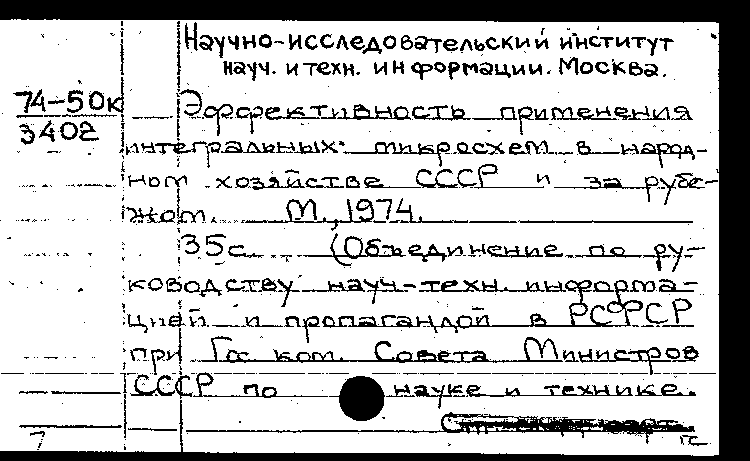 Научно-исследовательский институт
науч. и техн. информации. Москва.
74-50к
3402
Эффективность применения
интегральных микросхем в народ-
ном хозяйстве СССР и за рубе-
жом. М., 1974.
35с. (Объединение по ру-
ководству науч-техн. информа-
цией и пропагандой в РСФСР
при Гос ком. Совета Министров
СССР по науке и технике.
7